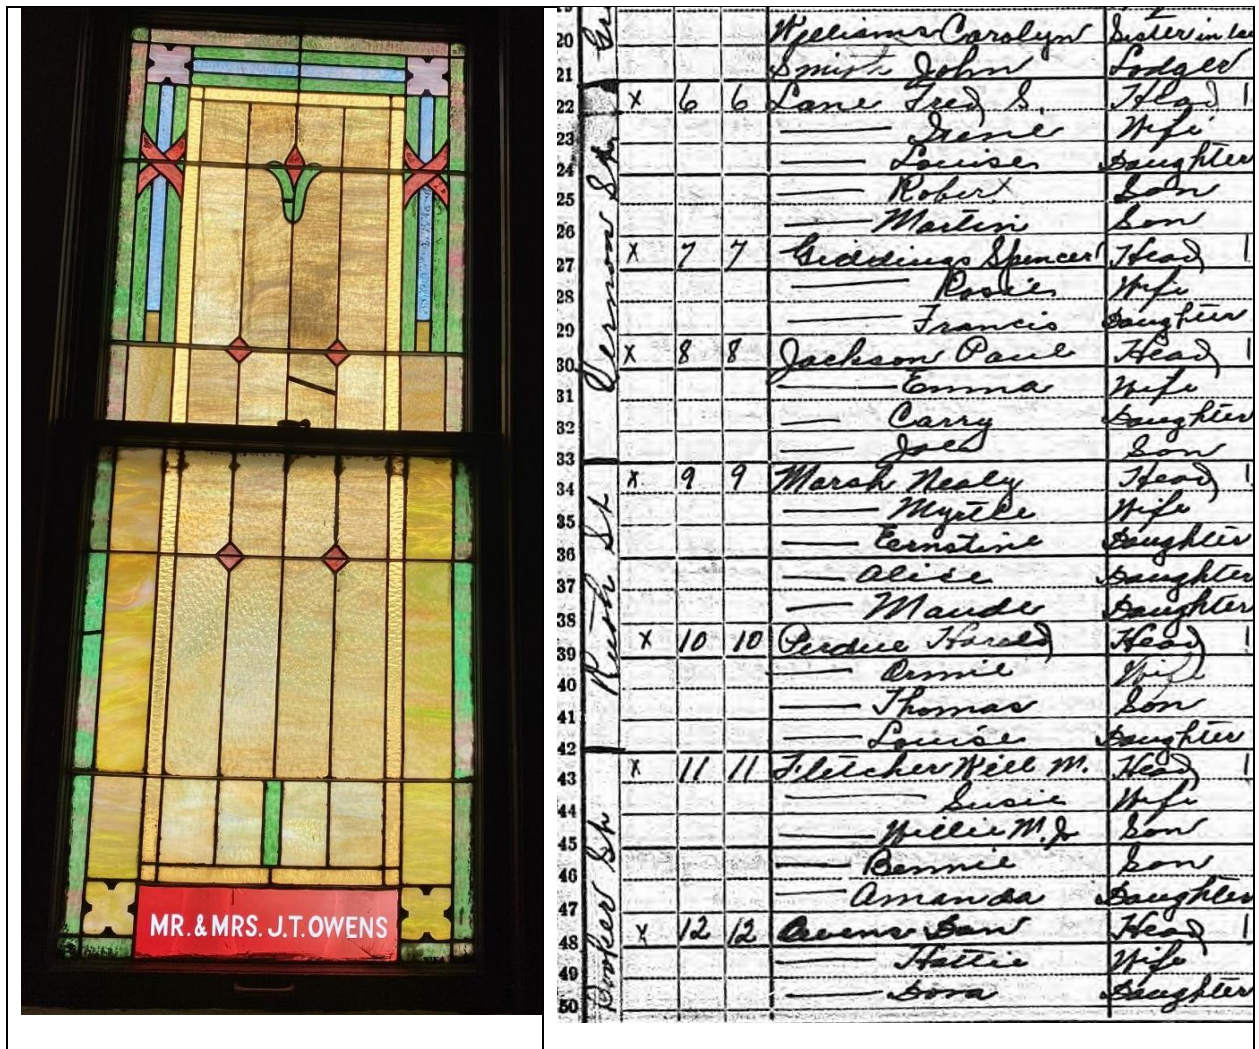 MR. & MRS. J.T. OWENS
20 Williams Carolyn Sister in law
21 Smith John Lodger
22 x 6 6 Lane Fred S. Head 1
23 —— Irene Wife
24 —— Louise Daughter
25 —— Robert Son
26 —— Martin Son
27 x 7 7 Giddings Spencer Head 1
28 —— Rosie Wife
29 —— Francis Daughter
30 x 8 8 Jackson Paul Head 1
31 —— Emma Wife
32 —— Carry Daughter
33 —— Son
34 x 9 9 Marsh Nealy Head 1
35 —— Myrtle Wife
36 —— Eernstine Daughter
37 —— Alice Daughter
38 —— Maude Daughter
39 x 10 10 Perdue Harold Head 1
40 —— Armie Wife
41 —— Thomas Son
42 —— Louise Daughter
43 x 11 11 Fletcher Will M. Head 1
44 —— Susie Wife
45 —— Willie M. Jr Son
46 —— Bennie Son
47 —— Amanda Daughter
48 x 12 12 Owens Dan Head 1
49 —— Hattie Wife
50 —— Dora Daughter
Vernon St
Ruth St
Booker St